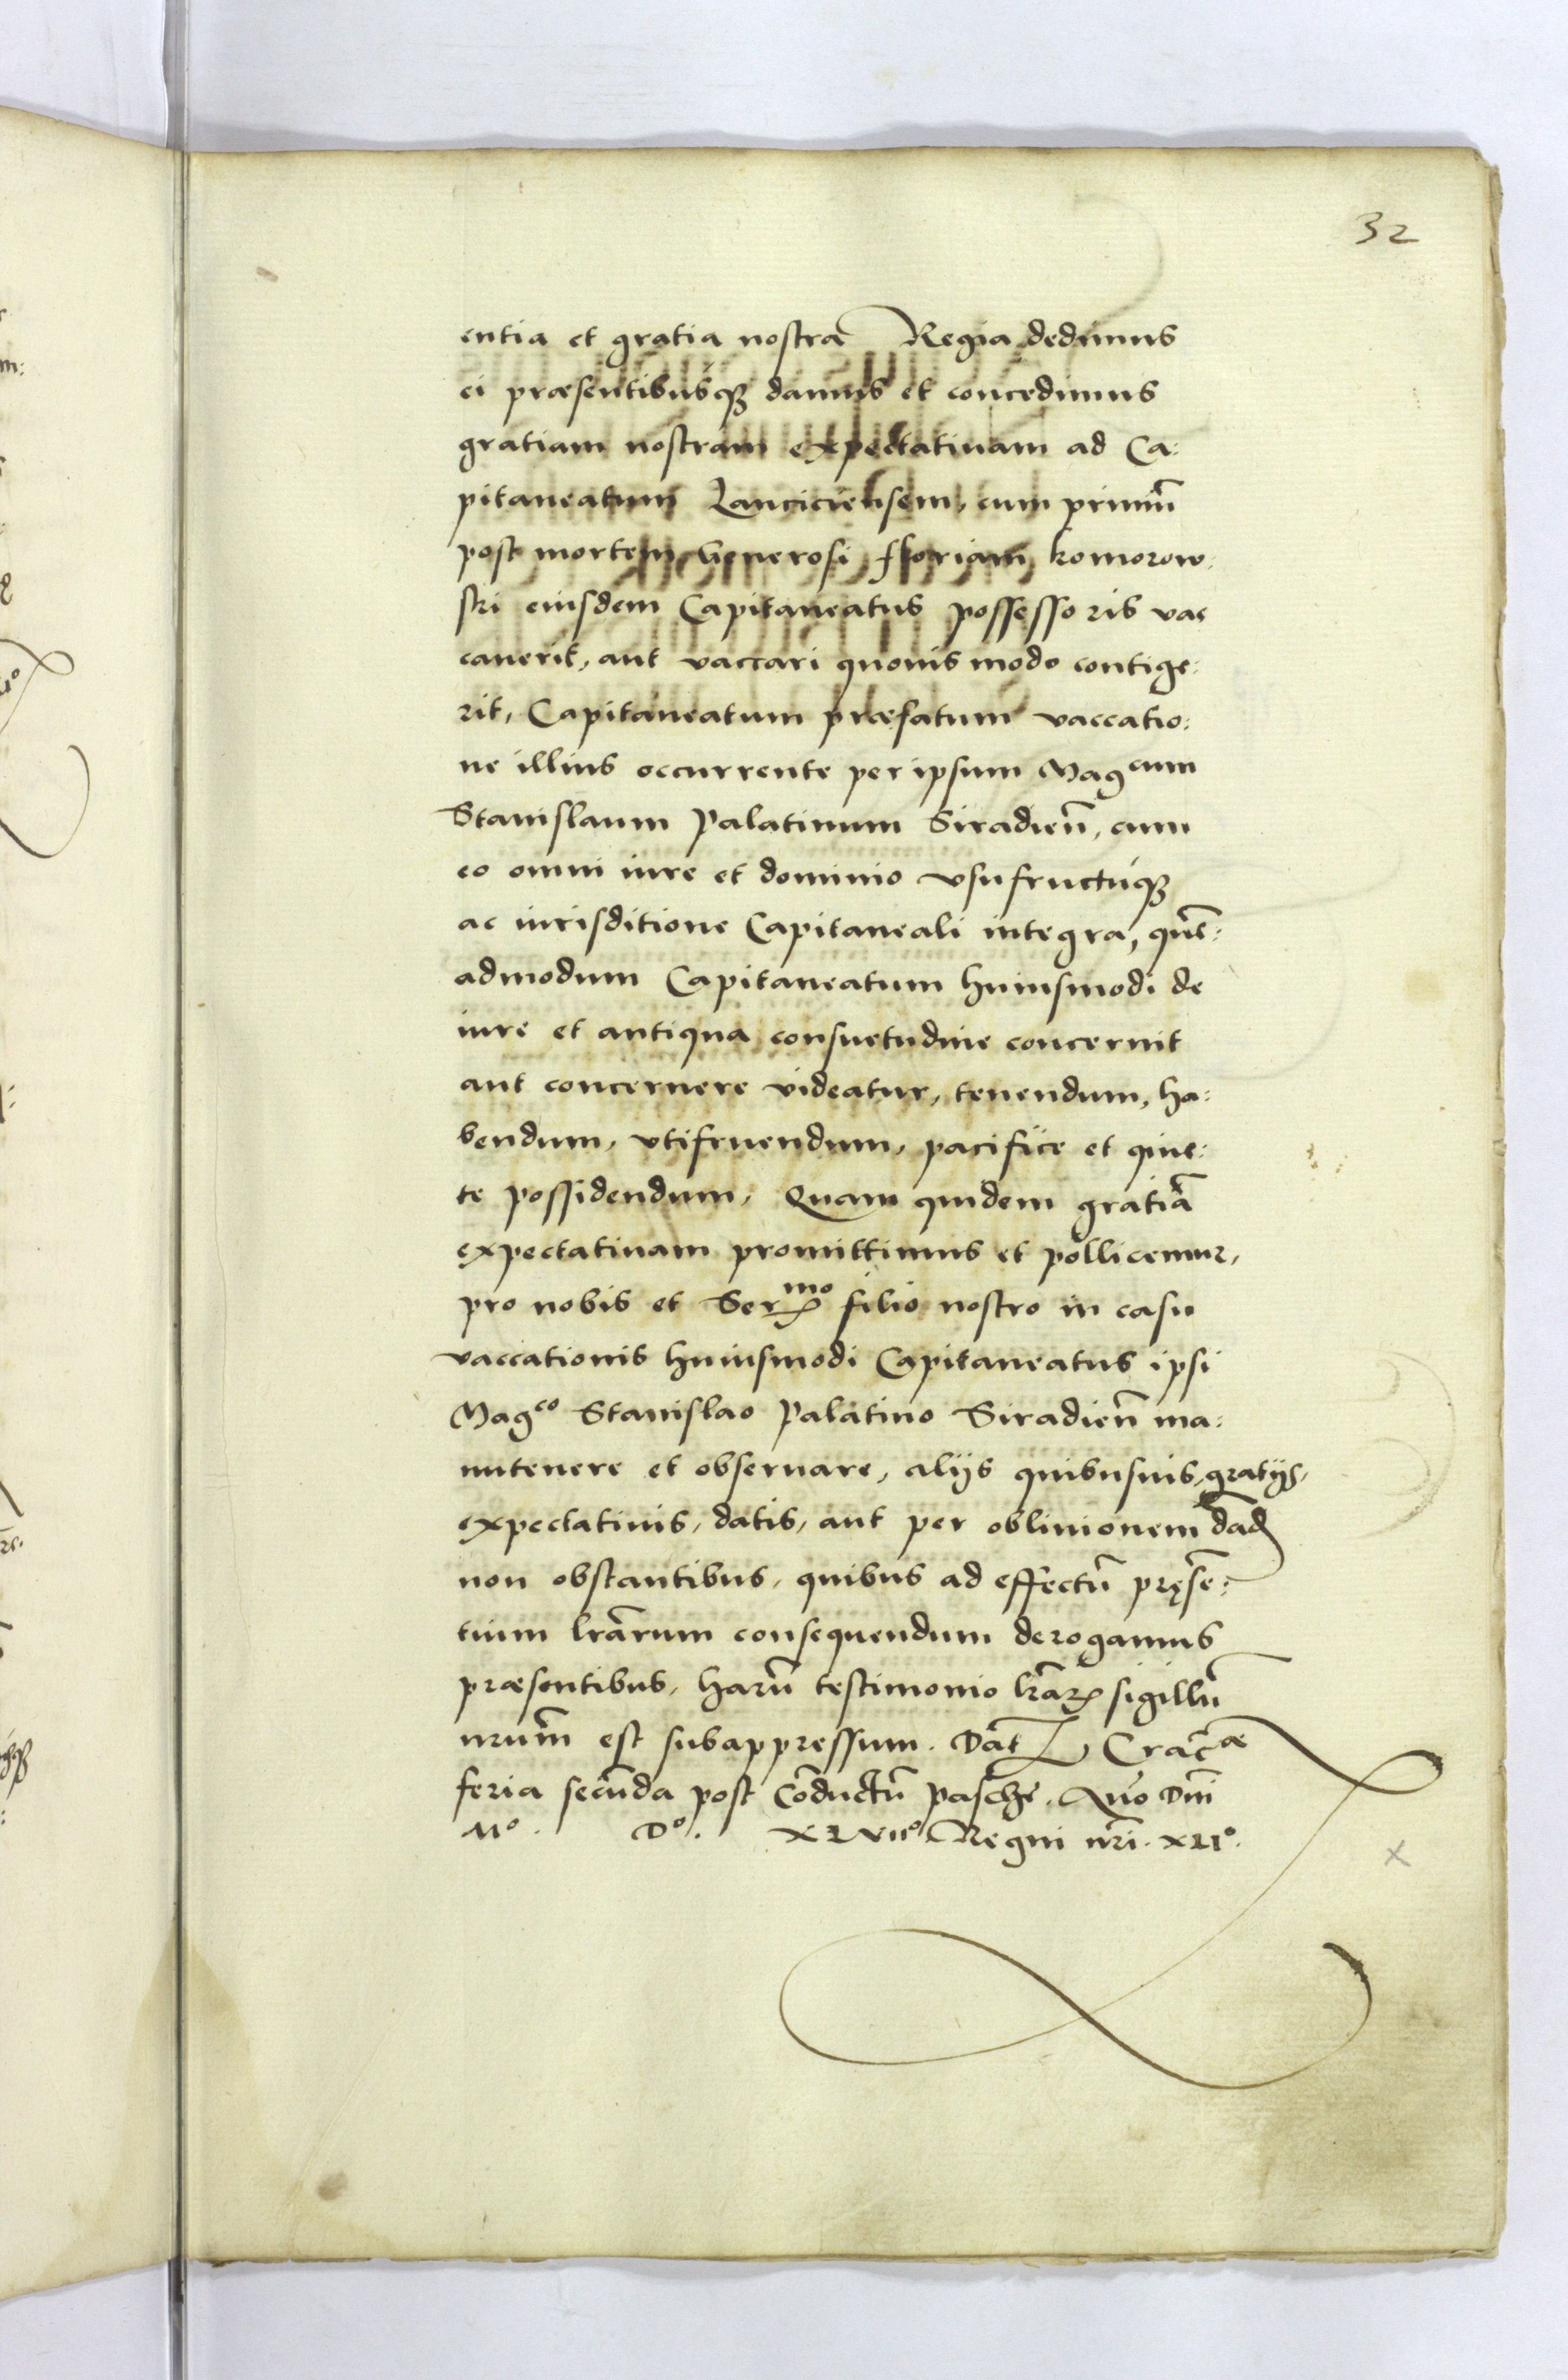 32
entia et gratia nostra Regia dedimus
ei præsentibusq3 damus et concedimus
gratiam nostram expectatiuam ad Ca:
pitaneatum Lanciciensem, cum primũ
post mortem Generosi Floriani Komorow:
ski eiusdem Capitaneatus possessoris vac
cauerit, aut vaccari quouis modo contige:
rit, Capitaneatum præfatum vaccatio:
ne illius occurrente per ipsum Magcum
Stanislaum Palatinum Siradieñ, cum
eo omni iure et dominio vsufructúq3
ac iurisditione Capitaneali integra, quẽ:
admodum Capitaneatum huiusmodi de
iure et antiqua consuetudine concernit
aut concernere videatur, tenendum, ha:
bendum, vtifruendum, pacifice et quie:
te possidendum, Quam quidem gratiã
expectatiuam promittimus et pollicemur,
pro nobis et Sermo filio nostro in casu
vaccationis huiusmodi Capitaneatus ipsi
Magco Stanislao Palatino Siradieñ ma:
nutenere et obseruare, alijs quibusuis, gratijs,
expectatiuis, datis, aut per obliuionem dãd
non obstantibus, quibus ad effectũ pręsẽ:
tium lrãrum consequendum derogamus
præsentibus, harũ testimonio lrãrꝝ sigillũ
nrum̃ est subappressum. Dat̃ Crac̃æ
feria secũda post Cõductũ pasche, Año Dñi
Mº. Dº. XLVIIº. Regni nr̃i. XLIº.
x